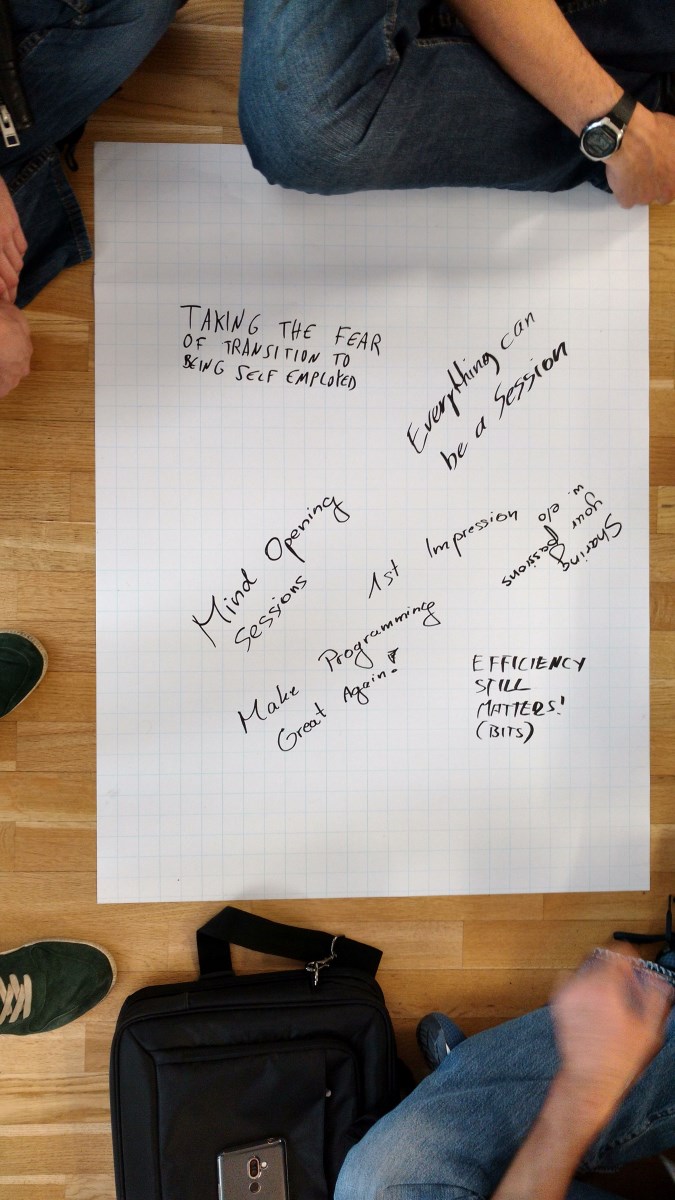 TAKING THE FEAR
OF TRANSITION TO
BEING SELF EMPLOYED
Everything can
be a Session
Mind Opening
Sessions
1st Impression
Sharing
your passions
w. e/o
Make Programming
Great Again!
EFFICIENCY
STILL
MATTERS!
(BITS)